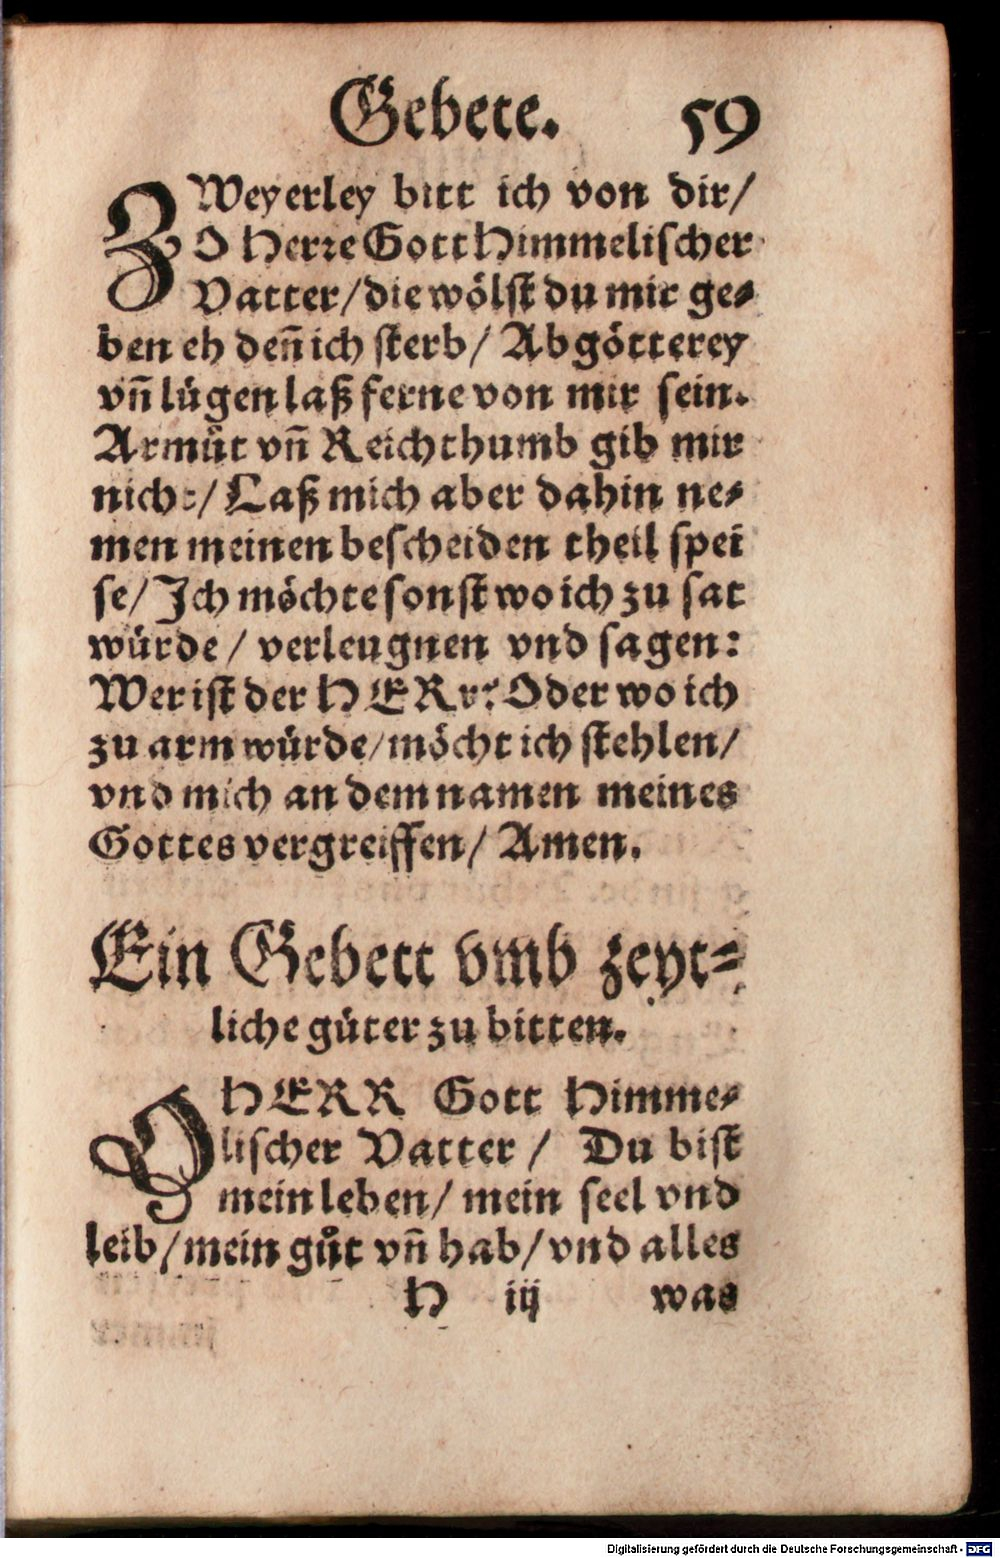 Gebete. 59
ZWeyerley bitt ich von dir/
O Herre Gott Himmelischer
Vatter/ die wölst du mir ge⸗
ben eh deñ ich sterb/ Abgötterey
vñ lügen laß ferne von mir sein.
Armůt vñ Reichthumb gib mir
nicht/ Laß mich aber dahin ne⸗
men meinen bescheiden theil spei
se/ Ich möchte sonst wo ich zu sat
würde/ verleugnen vnd sagen:
Wer ist der HERr? Oder wo ich
zu arm würde/ möcht ich stehlen/
vnd mich an dem namen meines
Gottes vergreiffen/ Amen.
Ein Gebett vmb zeyt⸗
liche güter zu bitten.
O HERR Gott Himme⸗
lischer Vatter/ Du bist
mein leben/ mein seel vnd
leib/ mein gůt vñ hab/ vnd alles
H iij was
Digitalisierung gefördert durch die Deutsche Forschungsgemeinschaft - DFG